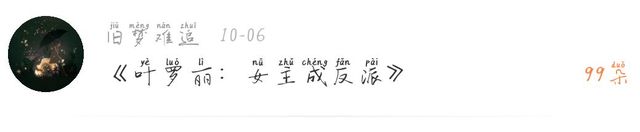 jiù mèng nán zhuī
旧梦难追 10-06
yè luó lì nǚ zhǔ chéng fǎn pài
《叶罗丽：女主成反派》
duǒ
99朵